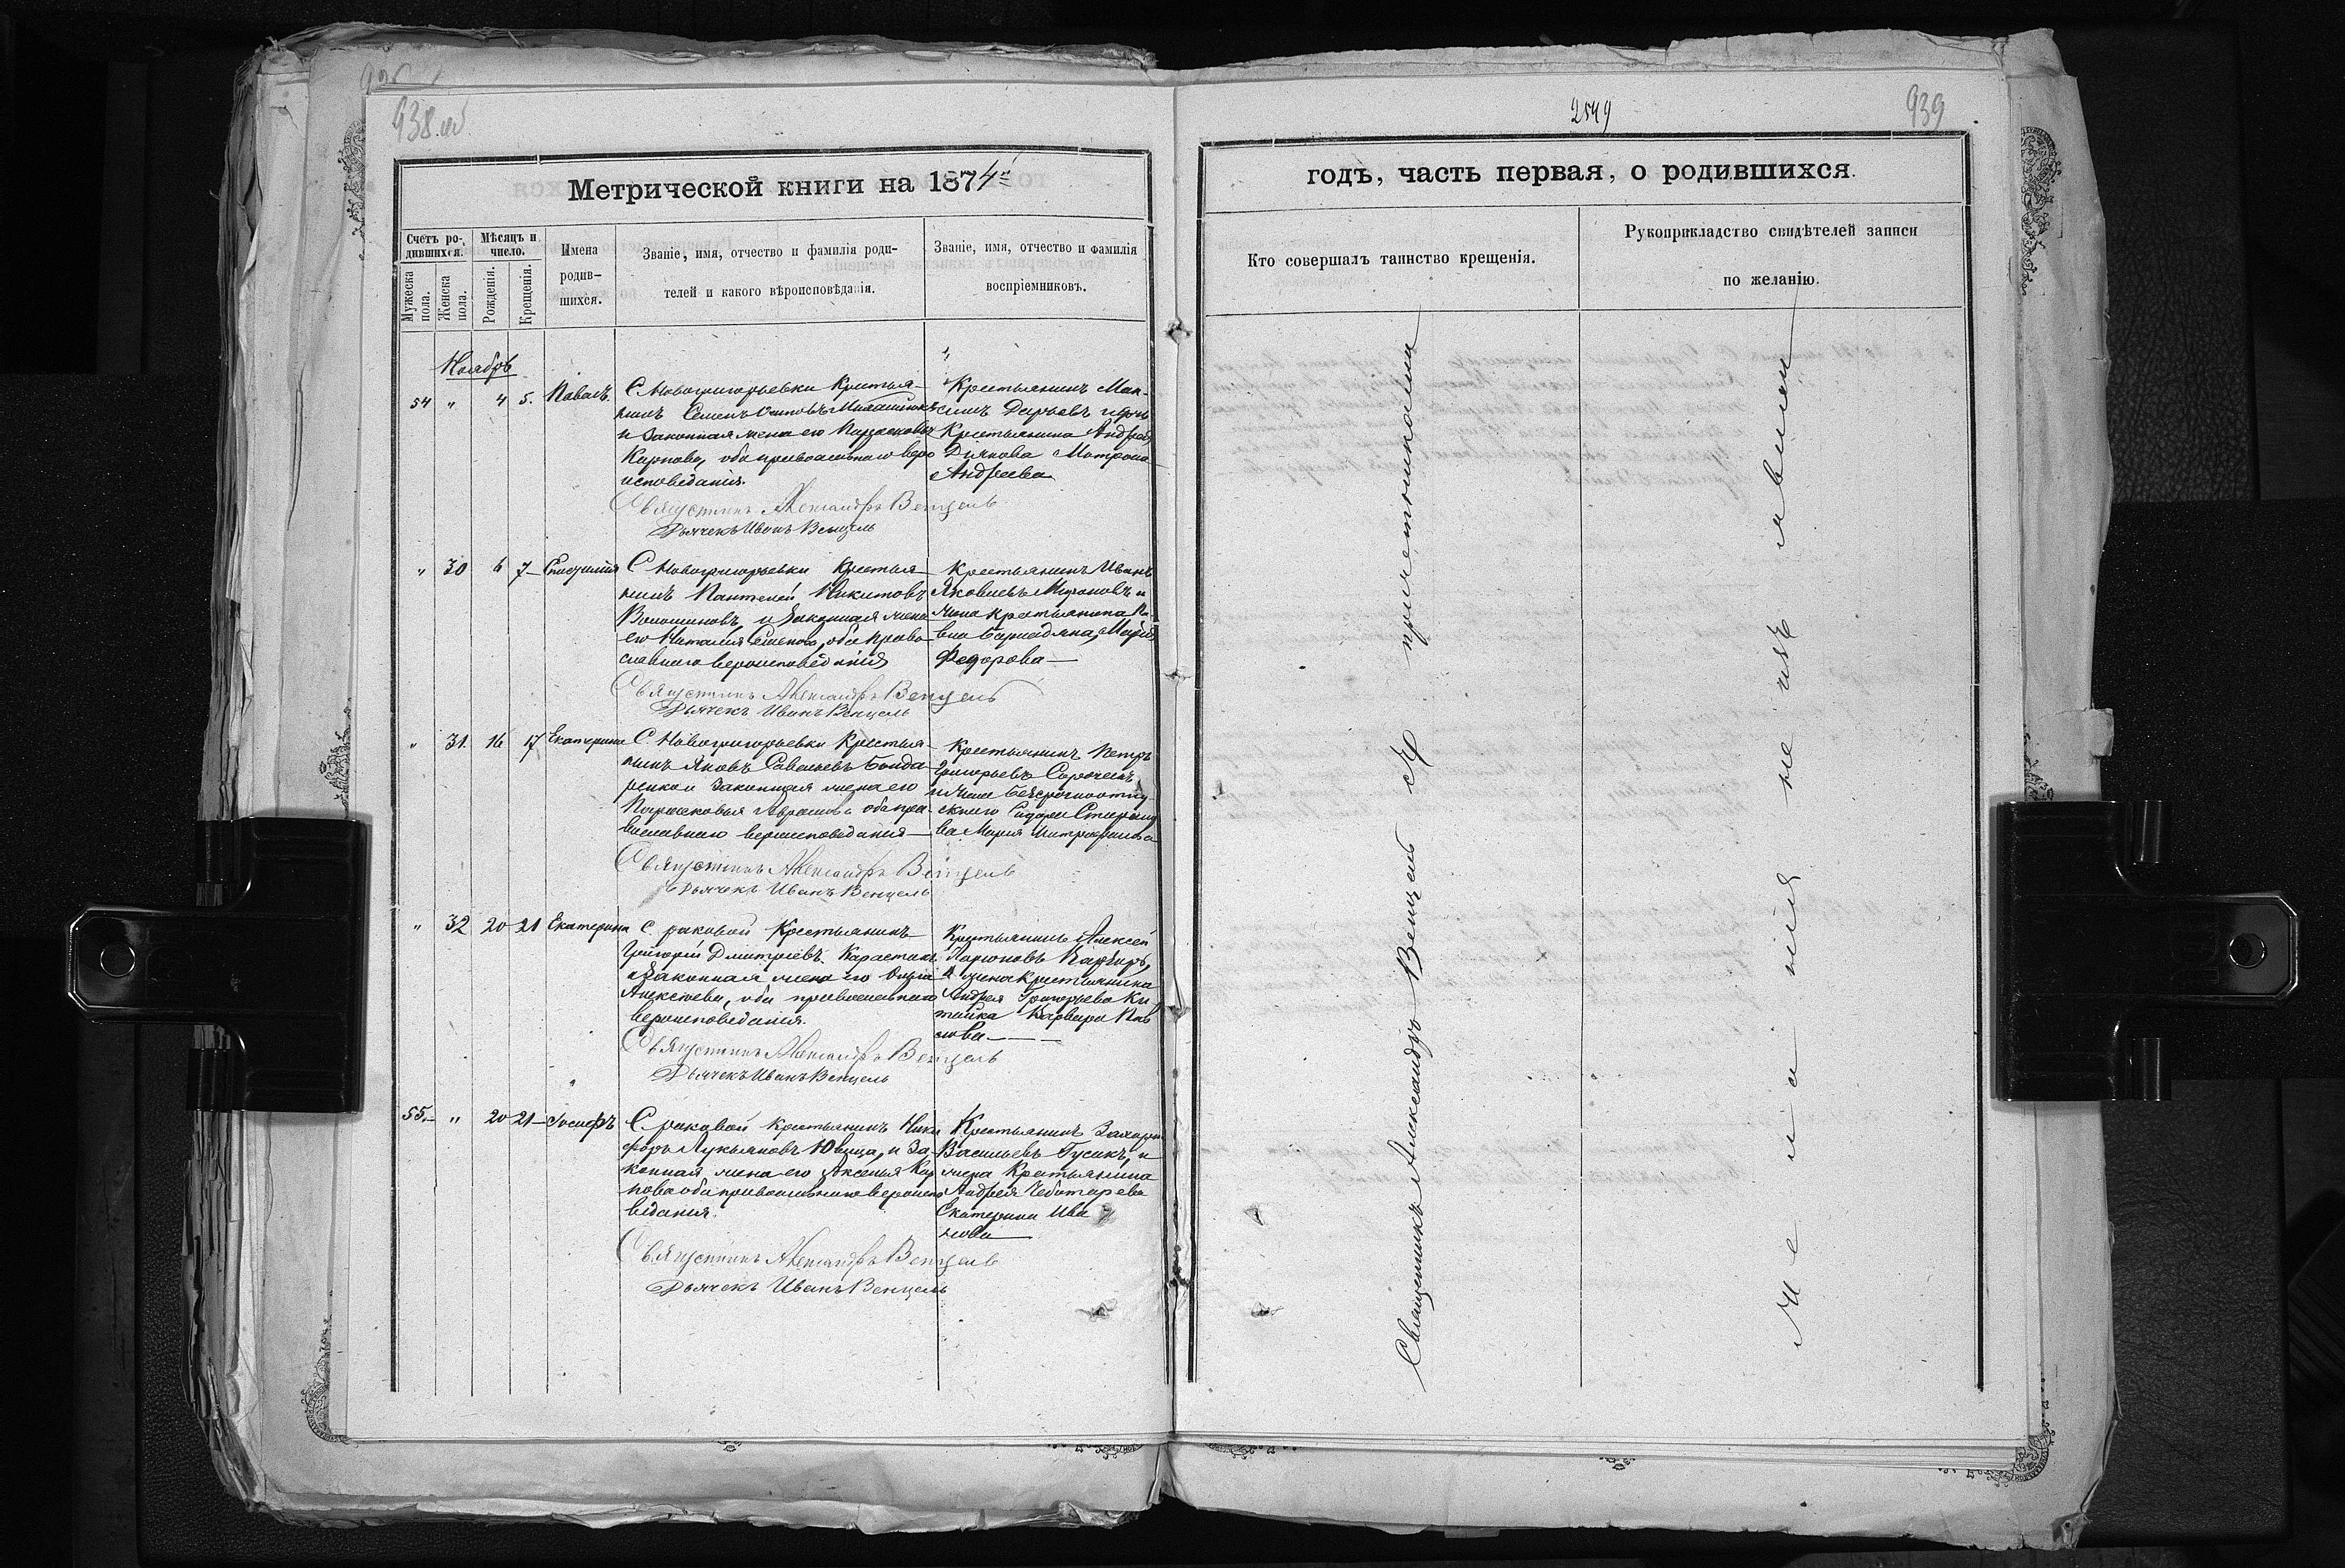 938 об
2549
939
Метрической книги на 1874
годъ, часть первая, о родившихся.
Счетъ ро-
дившихся.
Мужеска
пола.
Женска
пола.
Мѣсяцъ и
число.
Рожденія.
Крещенія.
Имена
родив-
шихся.
Званіе, имя, отчество и фамилія роди-
телей и какого вѣроисповѣданія.
Званіе, имя, отчество и фамилія
воспріемниковъ.
Кто совершалъ таинство крещенія.
Рукоприкладство свидѣтелей записи
по желанію.
Ноябрь
54 " 4 5. Павелъ.
С Новогригорьевки Крестья-
нинъ Семенъ
и законная жена его Парасковья
Карпова, оба православнаго веро
исповеданія.
Священникъ Александръ Венцель
Дьячекъ Иванъ Венцель
Крестьянинъ Мак-
симъ
Крестьянина Андрея
Дьякова Матрона
Андреева
" 30 6 7
С Новогригорьевки Крестья-
нинъ Пантелей Никитовъ
Волошиновъ, и законная жена
его Наталія оба право-
славнаго вероисповеданія
Священникъ Александръ Венцель
Дьячекъ Иванъ Венцель
Крестьянинъ Иванъ
Яковлевъ Мироновъ и
жена крестьянина Па-
Марія
Федорова
" 31. 16 17 Екатерина
С. Новогригорьевки Крестья-
нинъ Яковъ Савельевъ Бонда
ренко и Законная жена его
Парасковья оба пра-
вославнаго вероисповеданія
Священникъ Александръ Венцель
Дьячекъ Иванъ Венцель
Крестьянинъ Петръ
Григорьевъ
и жена Безсрочноотпу-
скнаго Сидора
ва Марія Митрофанова
" 32 20 21 Екатерина
С. раковой Крестьянинъ
Григорій Дмитріевъ
и Законная жена его
Алексеева, оба православнаго
вероисповеданія.
Священникъ Александръ Венцель
Дьячекъ Иванъ Венцель
Крестьянинъ Алексей
и жена Крестьянина
Андрея Григорьева Ки-
тайка Варвара Пав
лова
55. " 20 21 Іосифъ
С раковой крестьянинъ Ники
форъ Лукьяновъ и За-
конная жена его Аксенья Кар
пова оба православнаго вероиспо
веданія.
Священникъ Александръ Венцель
Дьячекъ Иванъ Венцель
Крестьянинъ Захарій
Васильевъ Гусакъ, и
жена Крестьянина
Андрея Чеботарева
Екатерина Ива
нова
Священникъ Александръ Венцель съ причетниками
Желанія не изъ явили